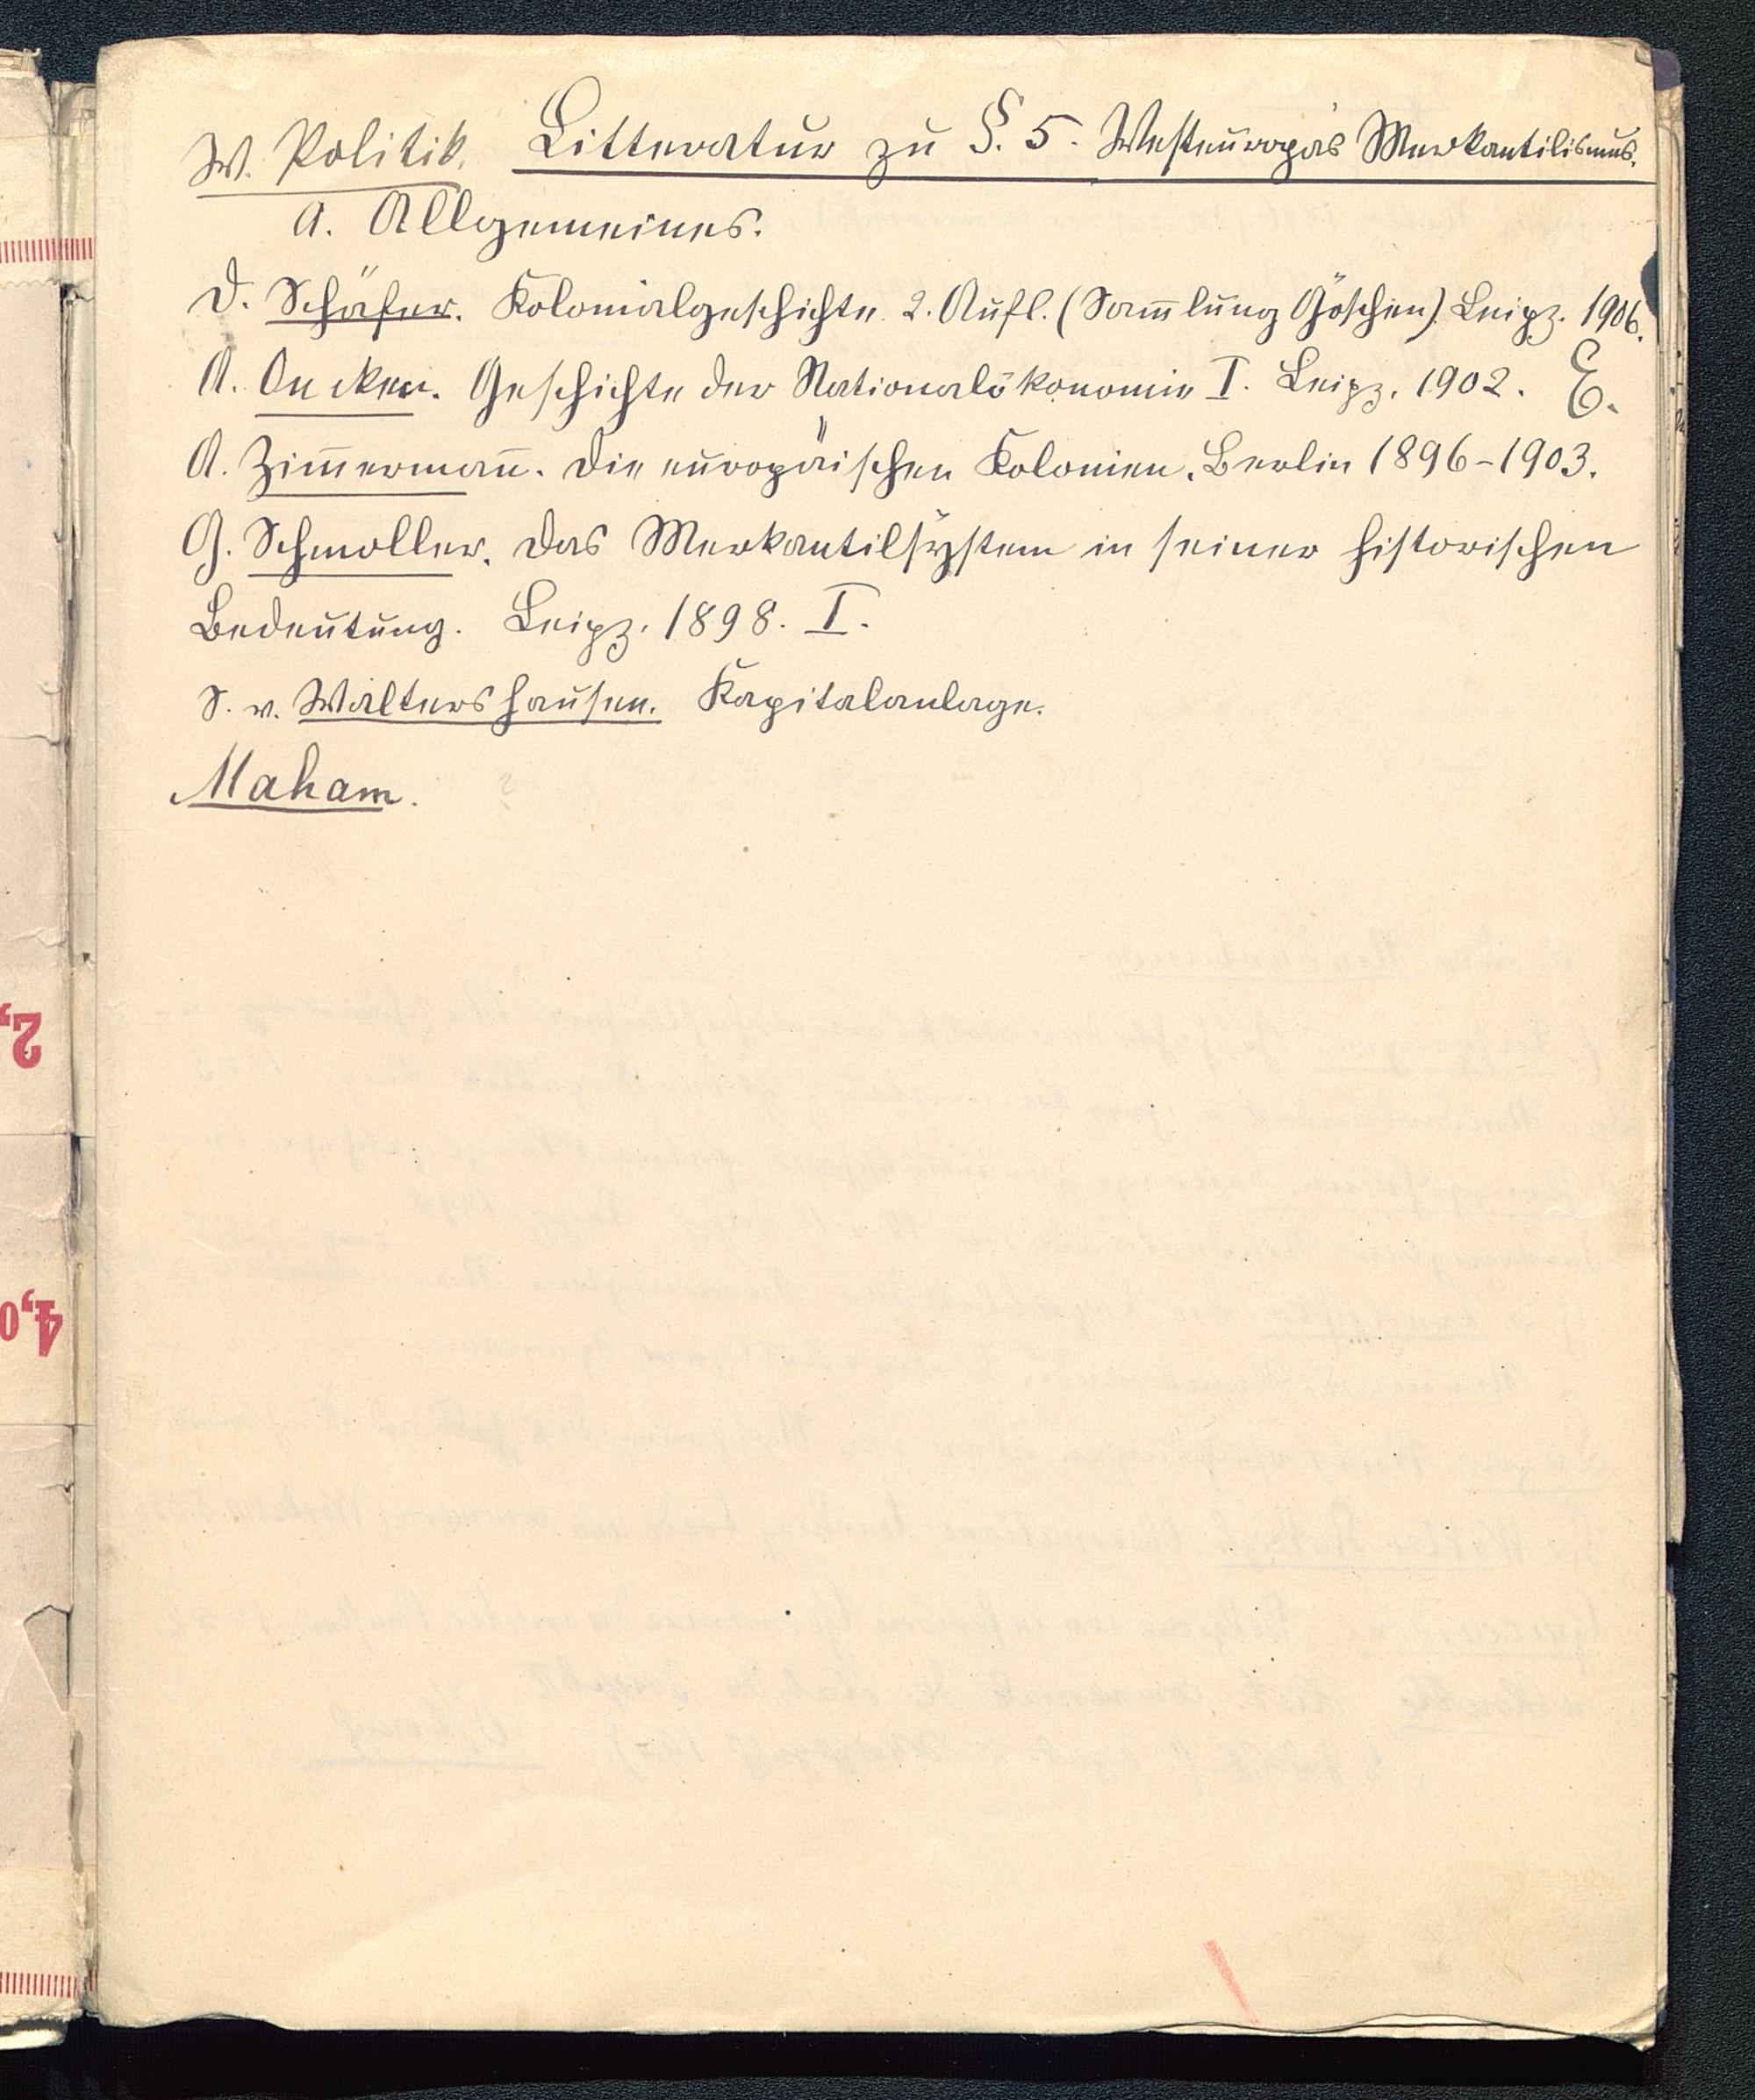 W. Politik. Litteratur zu §. 5. Westeuropas Merkantilismus.
a. Allgemeines.
D. Schäfer. Kolonialgeschichte. 2. Aufl. (Sam̅lung Göschen). Leipz. 1906.
A. Oncken. Geschichte der Nationalökonomie I. Leipz. 1902. E.
A. Zim̅erman̅. Die europäischen Kolonien. Berlin 1896-1903.
G. Schmoller. Das Merkantilsystem in seiner historischen
Bedeutung. Leipz. 1898. I.
S. v. Waltershausen. Kapitalanlage.
Maham.
2,
4,0